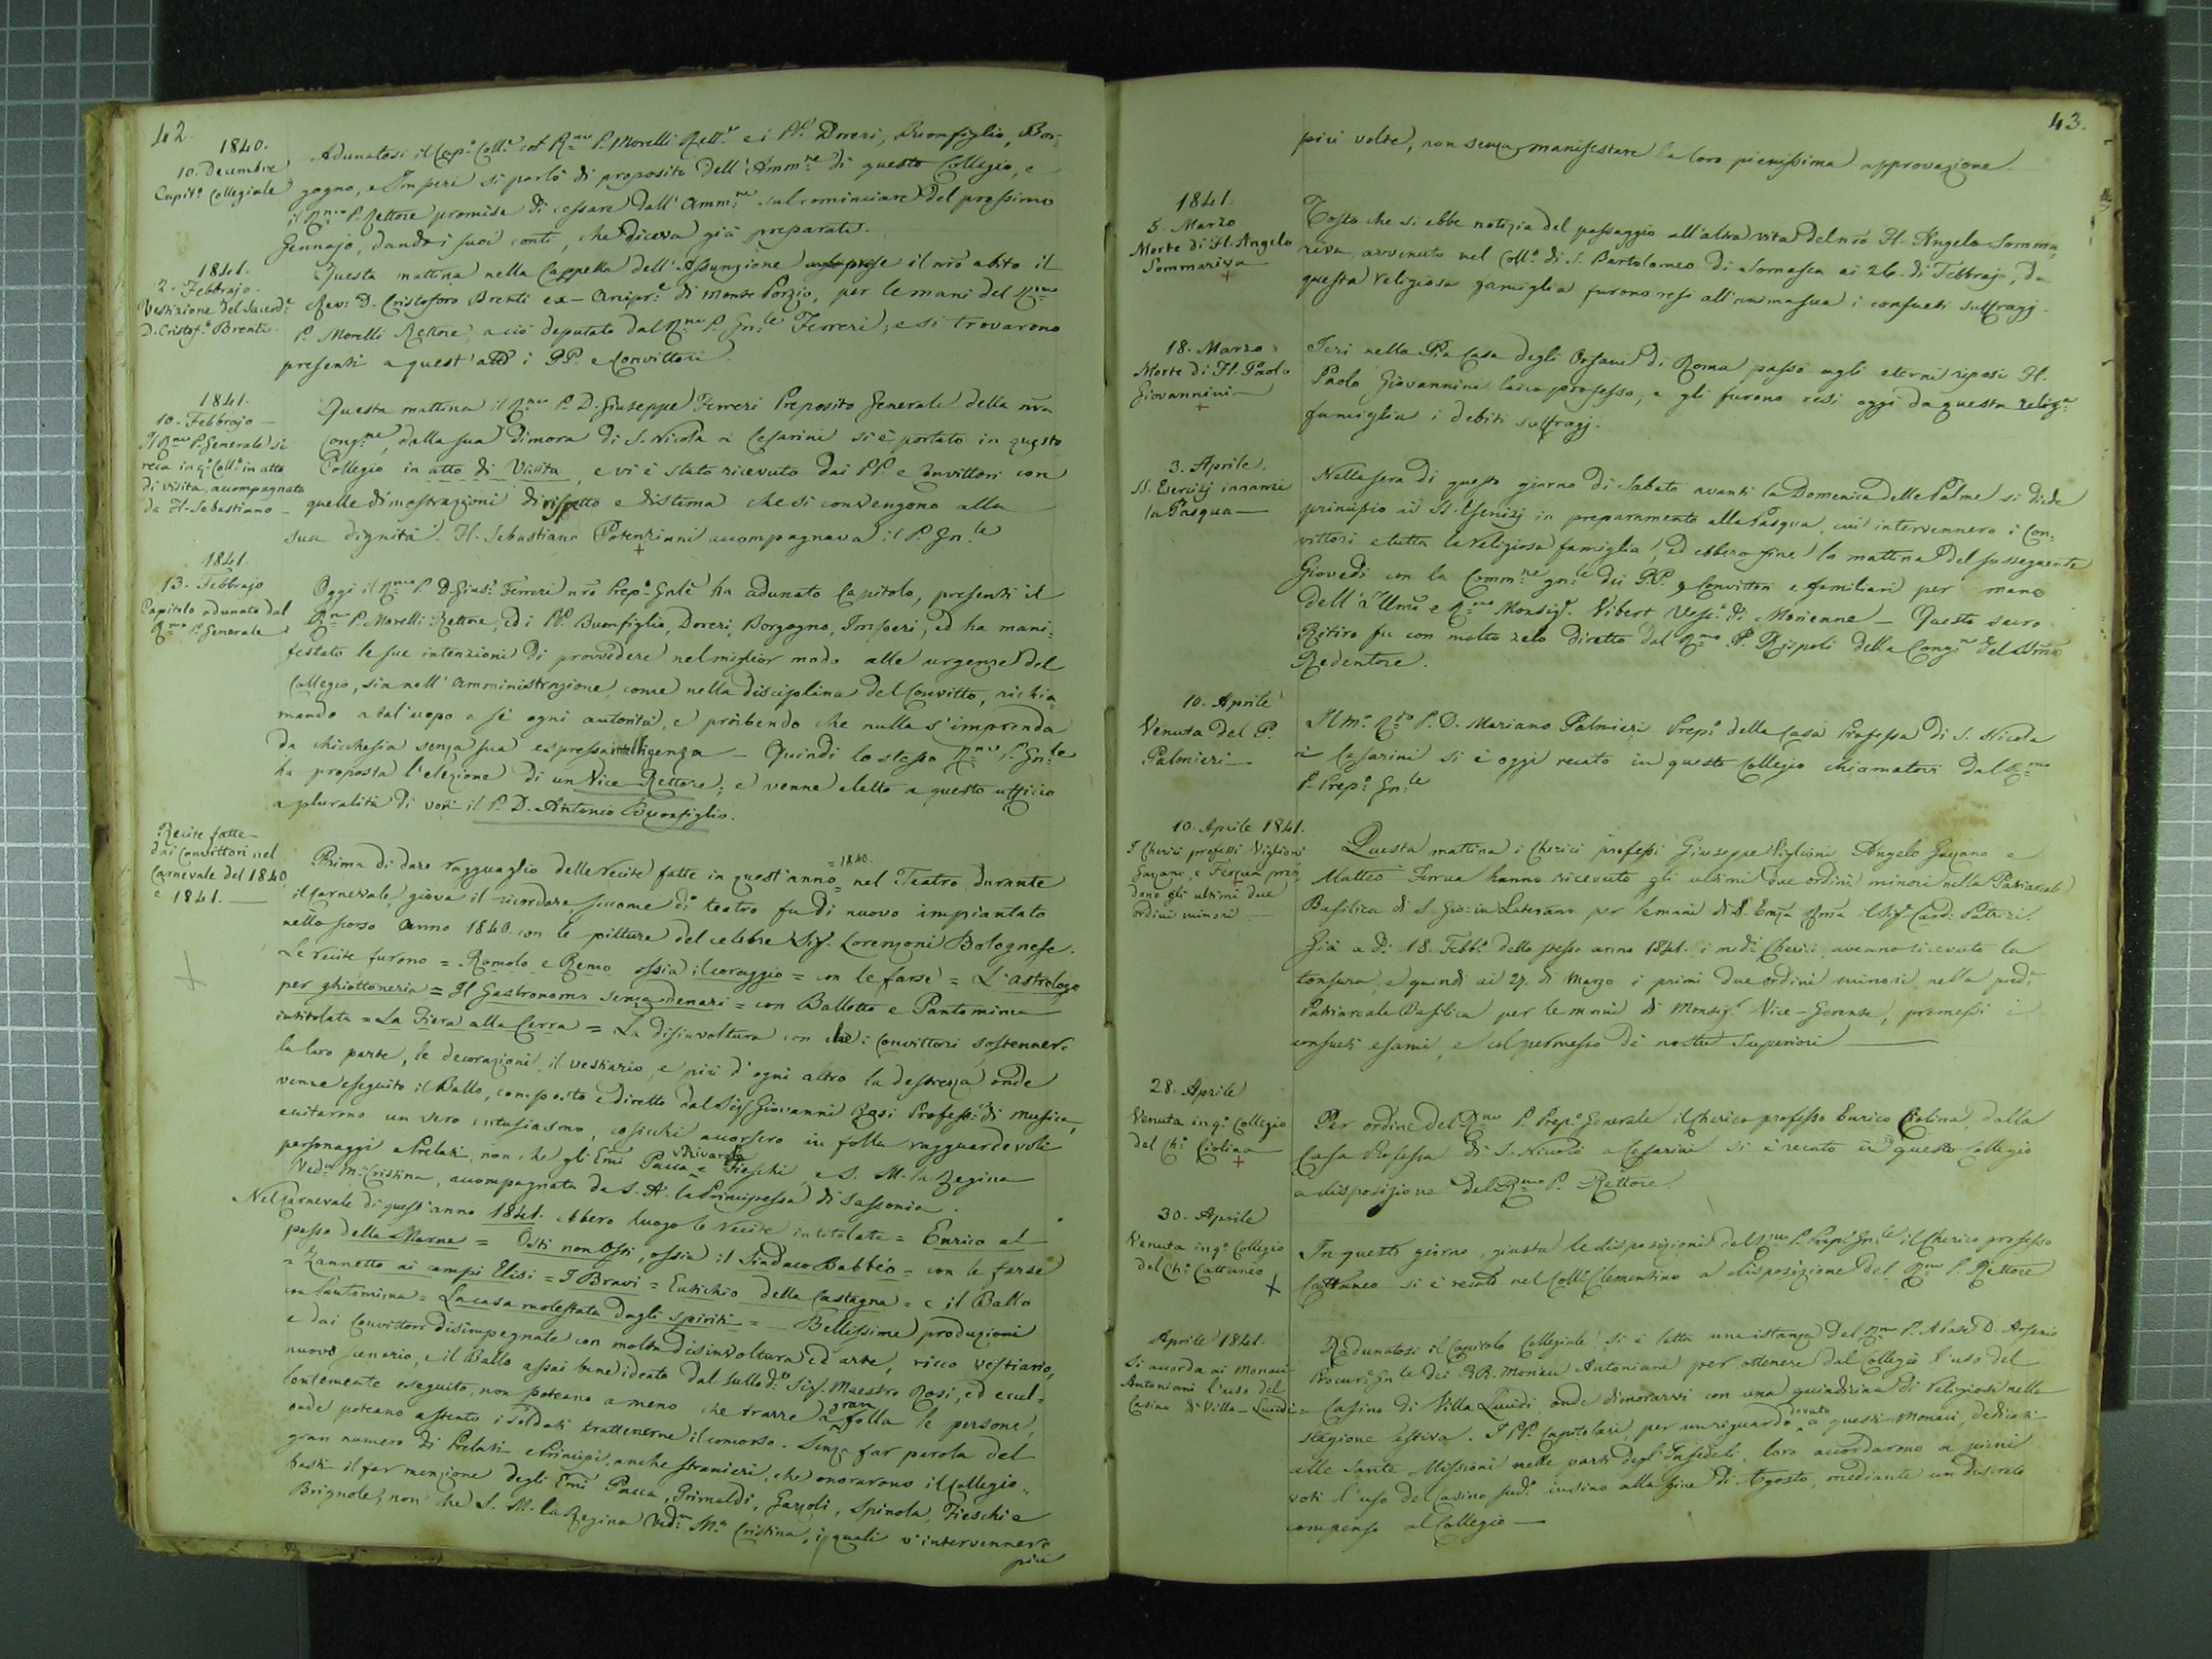 42.
1840.
10. Decembre
Capit.º Collegiale
Adunatosi il Cap.º Coll.e col R.mo P. Morelli Rett.e e i PP. Doveri, Buonfiglio, Bor-
gogno, e Imperi si parlò di proposito dell'Amm.ne di questo Collegio, e
il R.mo P. Rettore promise di cessare dall'amm.ne sul cominciare del prossimo
Gennajo, dando i suoi conti, che diceva già preparati.
1841.
2. Febbrajo.
Vestizione del Sacerd.e
D. Cristof.º Brenti.
Questa mattina nella Cappella dell'Assunzione prese il nrõ abito il
Rev: D. Cristoforo Brenti ex-Arcipr.e di Monte Porzio, per le mani del R.mo
P. Morelli Rettore, a ciò deputato dal R.mo P. Gn.le Ferreri; e si trovarono
presenti a quest'atto i PP. e Convittori.
1841.
10. Febbrajo —
Il R.mo P. Generale si
reca in q.º Coll.º in atto
di visita, accompagnato
da Fl. Sebastiano —
Questa mattina il R.mo P. D. Giuseppe Ferreri Preposito Generale della nrã
Cong.ne, dalla sua dimora di S. Nicola a Cesarini si è portato in questo
Collegio in atto di Visita, e vi è stato ricevuto dai PP. e Convittori con
quelle dimostrazioni di rispetto e di stima che si convengono alla
sua dignità. Fl. Sebastiano Potenziani accompagnava il P. Gn.le
1841.
13. Febbrajo
Capitolo adunato dal
R.mo P. Generale
Oggi il R.mo P. D. Gius.e Ferreri nrõ Prep.º Gnlẽ ha adunato Capitolo, presenti il
R.mo P. Morelli Rettore, ed i PP. Buonfiglio, Doveri, Borgogno, Imperi, ed ha mani-
festato le sue intenzioni di provvedere nel miglior modo alle urgenze del
Collegio, sia nell'amministrazione, come nella disciplina del Convitto, richia-
mando a tal'uopo a sè ogni autorità, e proibendo che nulla s'imprenda
da chicchesia senza sua espressa intelligenza — Quindi lo stesso R.mo P. Gn.le
ha proposta l'elezione di un Vice-Rettore; e venne eletto a questo ufficio
a pluralità di voti il P. D. Antonio Buonfiglio.
Recite fatte
dai Convittori nel
Carnevale del 1840
e 1841. —
Prima di dare ragguaglio delle recite fatte in quest'anno = 1840. = nel Teatro durante
il carnevale, giova il ricordare, siccome d.º teatro fu di nuovo impiantato
nello scorso anno 1840. con le pitture del celebre Sig. Lorenzoni Bolognese.
Le recite furono = Romolo e Remo ossia il coraggio = con le farse = L'astrologo
per ghiottoneria = Il Gastronomo senza denari = con Balletto e Pantomima
intitolata = La Fiera alla Cerra = La disinvoltura con che i Convittori sostennero
la loro parte, le decorazioni, il vestiario, e più d'ogni altro la destrezza onde
venne eseguito il Ballo, composto e diretto dal Sig. Giovanni Rosi Profess.e di musica,
eccitarono un vero entusiasmo, cosicchè accorsero in folla ragguardevoli
personaggi e Prelati, non che gli Emĩ Pacca, Rivarola e Fieschi, e S. M. la Regina
Ved.a M.a Cristina, accompagnata da S. A. la Principessa di Sassonia.
Nel carnevale di quest'anno 1841. ebbero luogo le recite intitolate = Enrico al
passo della Marna = Osti non Osti, ossia il Sindaco Babbèo = con le farse
= Zannetto ai campi Elisi = I Bravi = Eutichio della Castagna = e il Ballo
con Pantomima = La casa molestata dagli spiriti = — Bellissime produzioni
e dai Convittori disimpegnate con molta disinvoltura ed arte, ricco vestiario,
nuovo scenario, e il Ballo assai bene ideato dal sullod.º Sig. Maestro Rosi, ed eccel-
lentemente eseguito, non poteano a meno che trarre a gran folla le persone,
onde poteano a stento i Soldati trattenerne il concorso. Senza far parola del
gran numero di Prelati e Principi, anche stranieri, che onorarono il Collegio,
basti il far menzione degli Emĩ Pacca, Grimaldi, Gazzoli, Spinola, Fieschi e
Brignole, non che S. M. la Regina Ved.a M.a Cristina, i quali v'intervennero
più
43.
più volte, non senza manifestare la loro pienissima approvazione.
1841.
5. Marzo
Morte di Fl. Angelo
Sommariva
Tosto che si ebbe notizia del passaggio all'altra vita del nrõ Fl. Angelo Somma-
riva, avvenuto nel Coll.º di S. Bartolomeo di Somasca ai 26. di Febbrajo, da
questa religiosa famiglia furono resi all'anima sua i consueti suffragj.
18. Marzo
Morte di Fl. Paolo
Giovannini
Jeri nella Pia Casa degli Orfani di Roma passò agli eterni riposi Fl.
Paolo Giovannini laico professo, e gli furono resi oggi da questa relig.a
famiglia i debiti suffragj.
3. Aprile.
SS. Esercizj innanzi
la Pasqua —
Nella sera di questo giorno di Sabato avanti la Domenica delle Palme si diede
principio ai SS. Esercizj in preparamento alla Pasqua, cui intervennero i Con-
vittori e tutta la religiosa famiglia, ed ebbero fine la mattina del susseguente
Giovedì con la Comm.ne gn.le dei PP. e Convittori e familiari per mano
dell'Illmõ e R.mo Monsig.r Vibert, Vesc.º di Morienne — Questo sacro
Ritiro fu con molto zelo diretto dal R.mo P. Rispoli della Cong.ne del SSmõ
Redentore.
10. Aprile
Venuta del P.
Palmieri —
Il M.º R.do P. D. Mariano Palmieri Prep.º della Casa Professa di S. Nicola
a Cesarini si è oggi recato in questo Collegio chiamatovi dal R.mo
P. Prep.º Gn.le
10. Aprile 1841.
I Cherici professi Viglioni
Gayano, e Ferrua pren-
dono gli ultimi due
ordini minori —
Questa mattina i Cherici professi Giuseppe Viglioni, Angelo Gayano e
Matteo Ferrua hanno ricevuto gli ultimi due ordini minori nella Patriarcale
Basilica di S. Gio: in Laterano per le mani di S. Emzã Rmã il Sig.r Card: Patrizi.
Già a Dì 18. Febb.º dello stesso anno 1841. i med.i Cherici aveano ricevuto la
tonsura, e quindi ai 27. di Marzo i primi due ordini minori nella pred.a
Patriarcale Basilica per le mani di Monsig.r Vice-Gerente, premessi i
consueti esami, e col permesso de' nostri Superiori —
28. Aprile
Venuta in q.º Collegio
del Ch.º Ciolina
Per ordine del R.mo P. Prep.º Generale il Cherico professo Enrico Ciolina, dalla
Casa Professa di S. Nicolò a Cesarini si è recato in questo Collegio
a disposizione del R.mo P. Rettore.
30. Aprile
Venuta in q.º Collegio
del Ch.º Cattaneo
In questo giorno, giusta le disposizioni del R.mo P. Prep.º Gn.le il Cherico professo
Cattaneo si è recato nel Coll.º Clementino a disposizione del R.mo P. Rettore
Aprile 1841.
Si accorda ai Monaci
Antoniani l'uso del
Casino di Villa-Lucidi =
Radunatosi il Capitolo Collegiale si è letta una istanza del R.mo P. Abate D. Arsenio
Procur.e Gn.le dei RR. Monaci Antoniani per ottenere dal Collegio l'uso del
Casino di Villa Lucidi, onde dimorarvi con una quindicina di religiosi nella
stagione estiva. I PP. Capitolari, per un riguardo dovuto a questi Monaci, dedicati
alle Sante Missioni nelle parti degl'Infedeli, loro accordarono a pieni
voti l'uso del Casino sud.º insino alla fine di Agosto, mediante un discreto
compenso al Collegio —